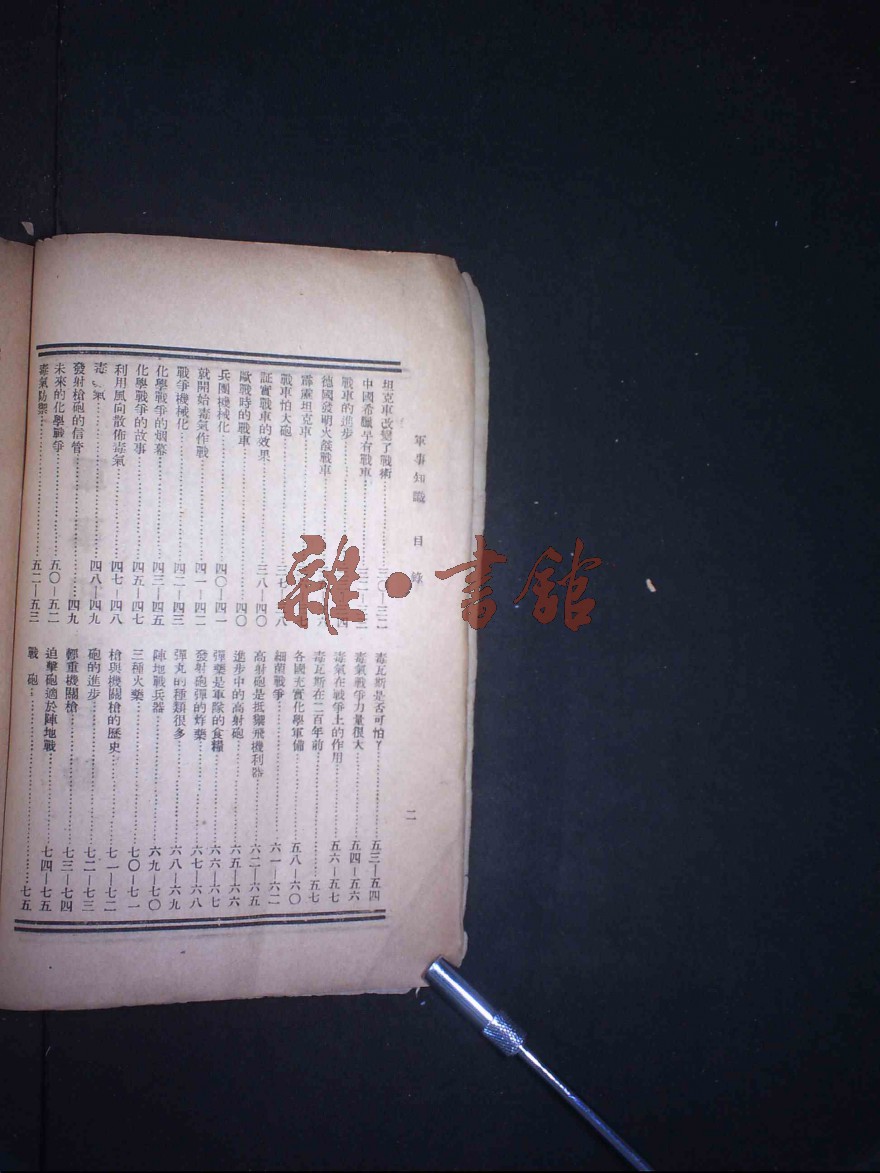 軍事知識 目錄 二
坦克車改變了戰術 三〇—三二
中國希臘早有戰車
戰車的進步
德國發明火燄戰車
霹靂坦克車
戰車怕大砲
証實戰車的效果 三八—四〇
歐戰時的戰車 四〇
兵團機械化 四〇—四一
就開始毒氣作戰 四一—四二
戰爭機械化 四二—四三
化學戰爭的烟幕 四三—四五
化學戰爭的故事 四五—四七
利用風向散佈毒氣 四七—四八
毒 氣 四八—四九
發射槍砲的信管 四九
未來的化學戰爭 五〇—五二
毒氣防禦 五二—五三
毒瓦斯是否可怕? 五三—五四
毒氣戰爭力量很大 五四—五六
毒氣在戰爭上的作用 五六—五七
毒瓦斯在二百年前 五七
各國充實化學軍備 五八—六〇
細菌戰爭 六一—六二
高射砲是抵禦飛機利器 六二—六五
進步中的高射砲 六五—六六
彈藥是軍隊的食糧 六六—六七
發射砲彈的炸藥 六七—六八
彈丸的種類很多 六八—六九
陣地戰兵器 六九—七〇
三種火藥 七〇—七一
槍與機關槍的歷史 七一—七二
砲的進步 七二—七三
輕重機關槍 七三—七四
迫擊砲適於陣地戰 七四—七五
戰 砲 七五
雜·書館